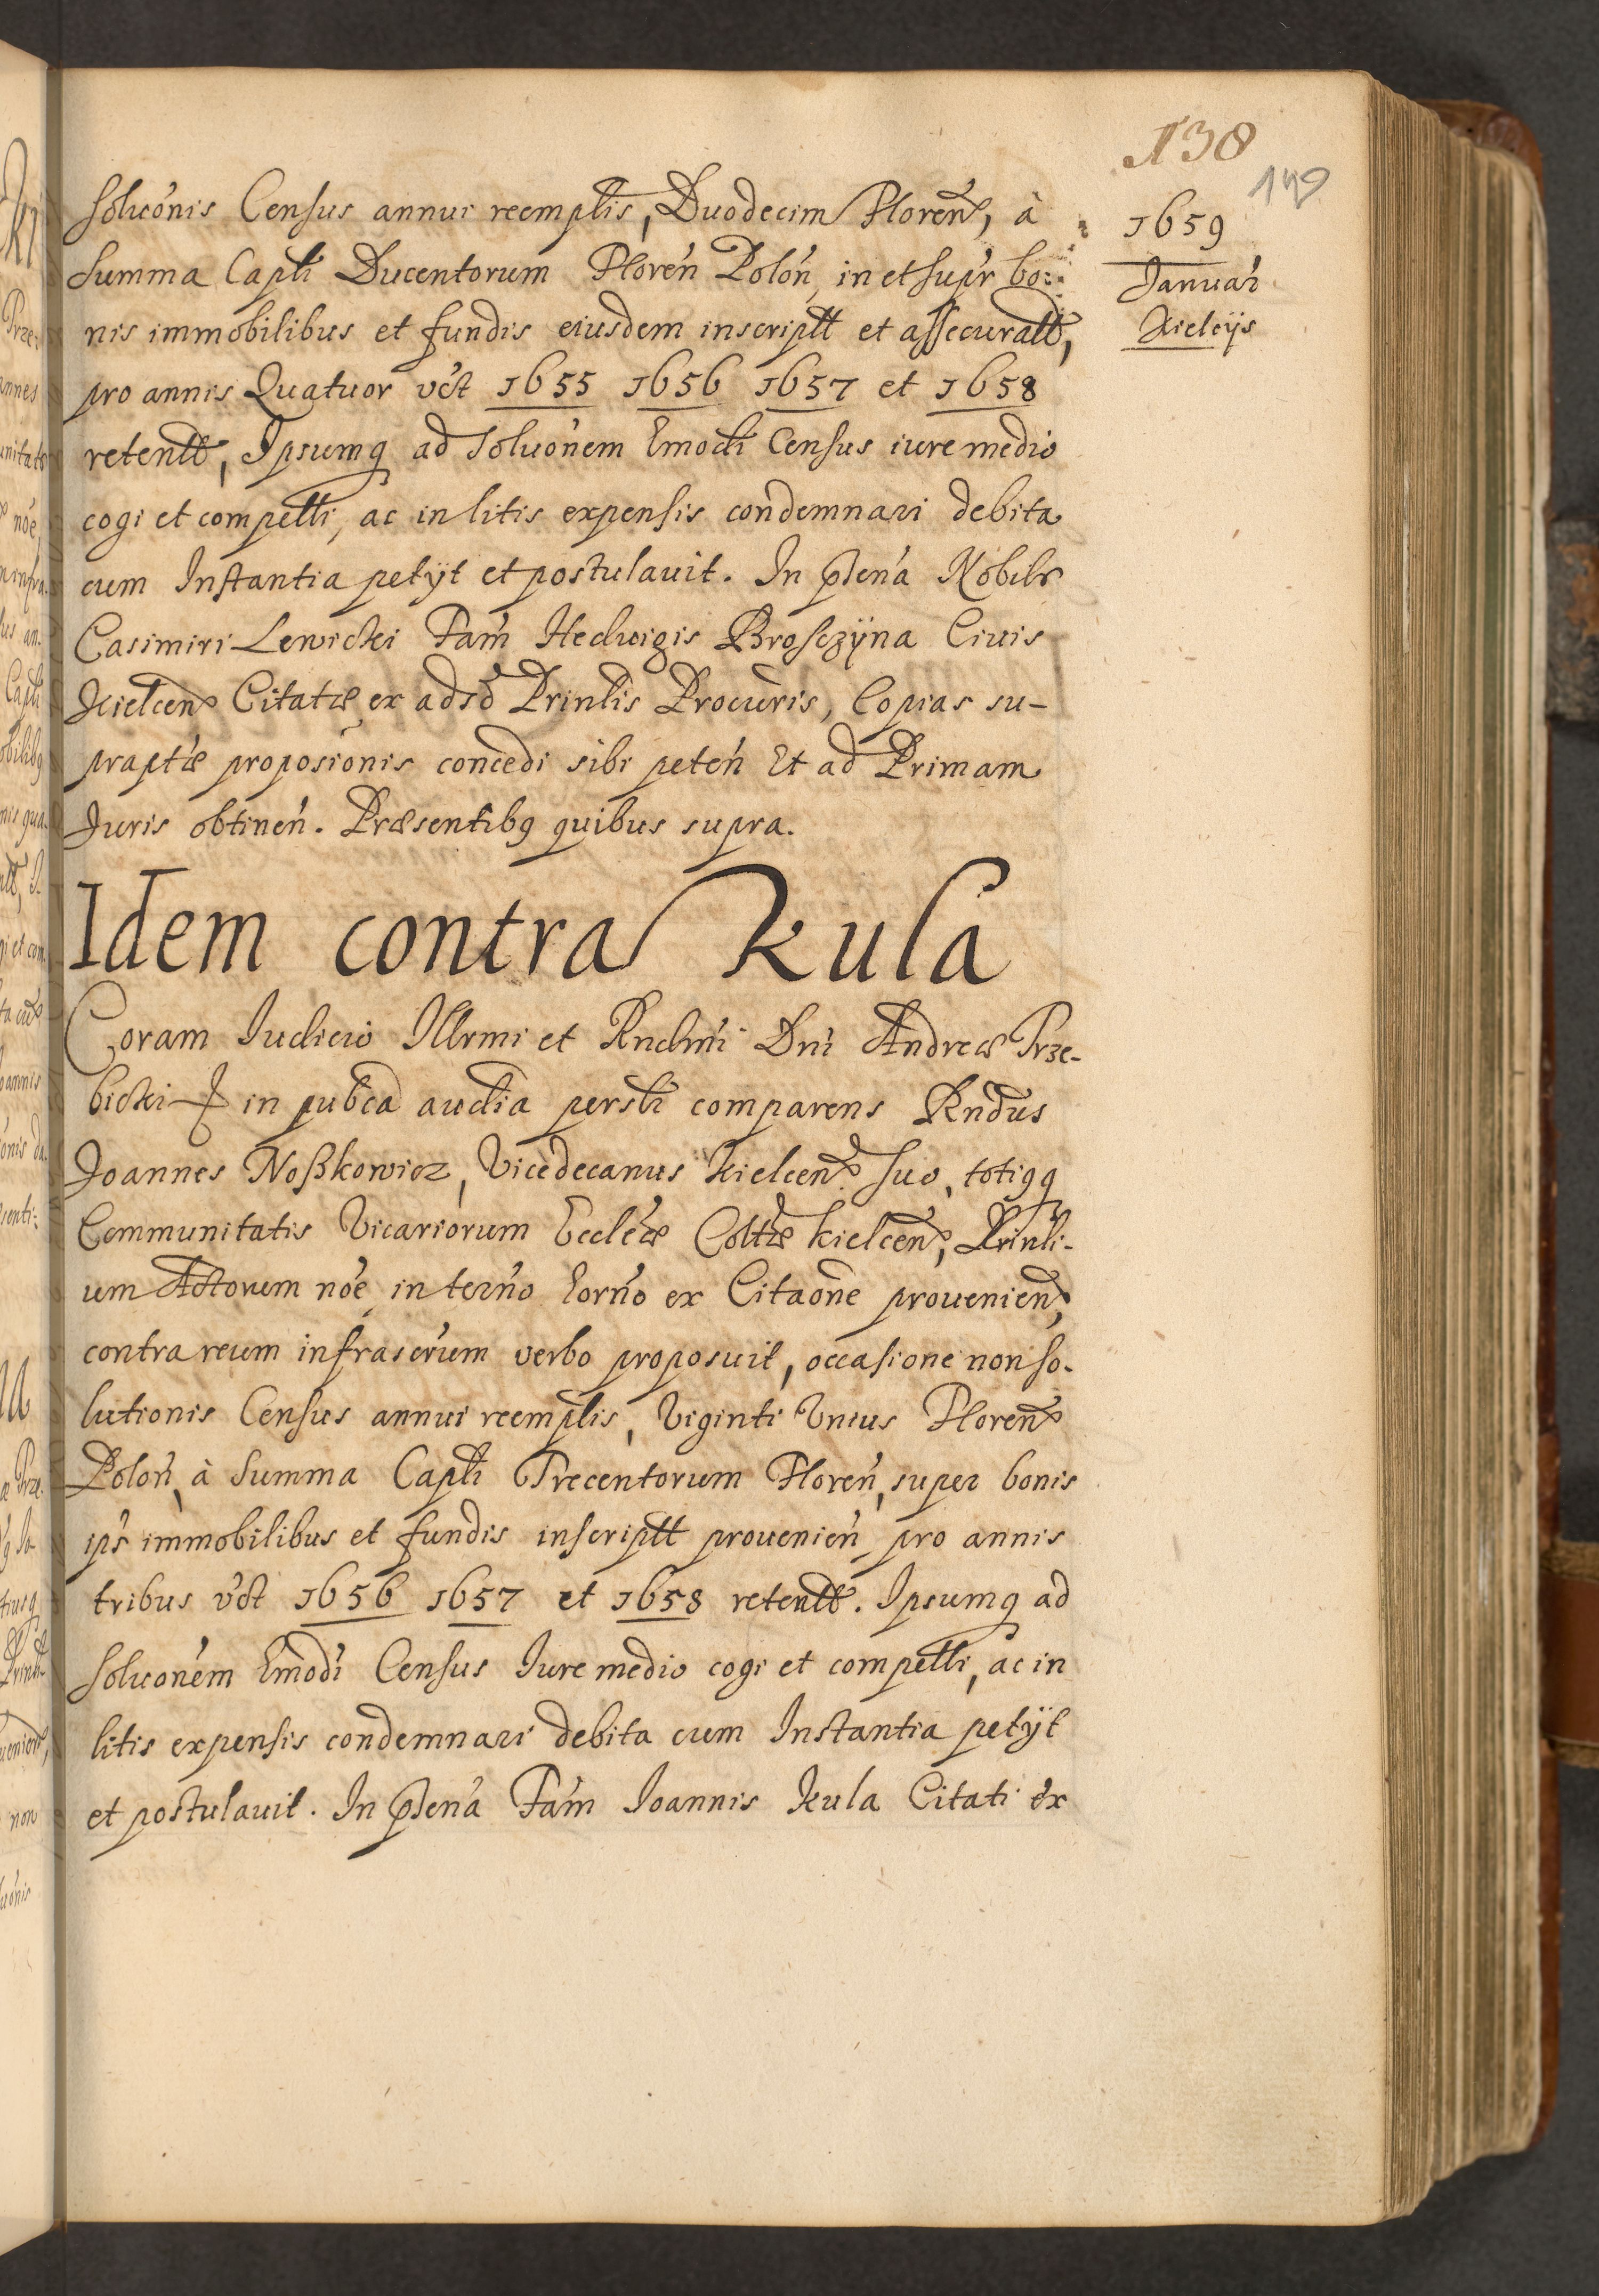 138
149
1659
Januar
Kielcijs
Soluõnis Census annui reemplis, Duodecim Floren, à
Summa Capli Ducentorum Floren Polon, in et supr bo:
nis immobilibus et fundis eiusdem inscriptt et assecuratt,
pro annis Quatuor vct 1655 1656 1657 et 1658
retentt, Ipsumq ad Soluonem Emodi Census iure medio
cogi et compelli, ac in litis expensis condemnari debita
cum Instantia petijt et postulauit. In pñena Nobilis
Casimiri Lewicki Fam Hedwigis Brosczyna Ciuis
Kielcen Citatæ ex adso Prinlis Procuris, Copias su-
praptæ proposionis concedi sibi peten Et ad Primam
Juris obtinen. Præsentibq quibus supra.
Idem contra Kula
Coram Iudicio Illrmi et Rndmi Dni Andreæ Trze-
bicki in pubca audia persli comparens Rndus
Joannes Noßkowicz, Vicedecanus Kielcen suo, totiqq
Communitatis Vicariorum Eccleæ Coltæ Kielcen, Prinli-
um Actorum noe, in terno horno ex Citaone prouenien,
contra reum infrascrum verbo proposuit, occasione non so-
lutionis Census annui reemplis, Viginti Vnius Floren
Polon, à Summa Capli Trecentorum Floren, super bonis
ips immobilibus et fundis inscriptt prouenien, pro annis
tribus vct 1656 1657 et 1658 retentt. Ipsumq ad
Soluonem Emodi Census Iure medio cogi et compelli, ac in
litis expensis condemnari debita cum Instantia petijt
et postulauit. In pñena Fam Joannis Kula Citati ex